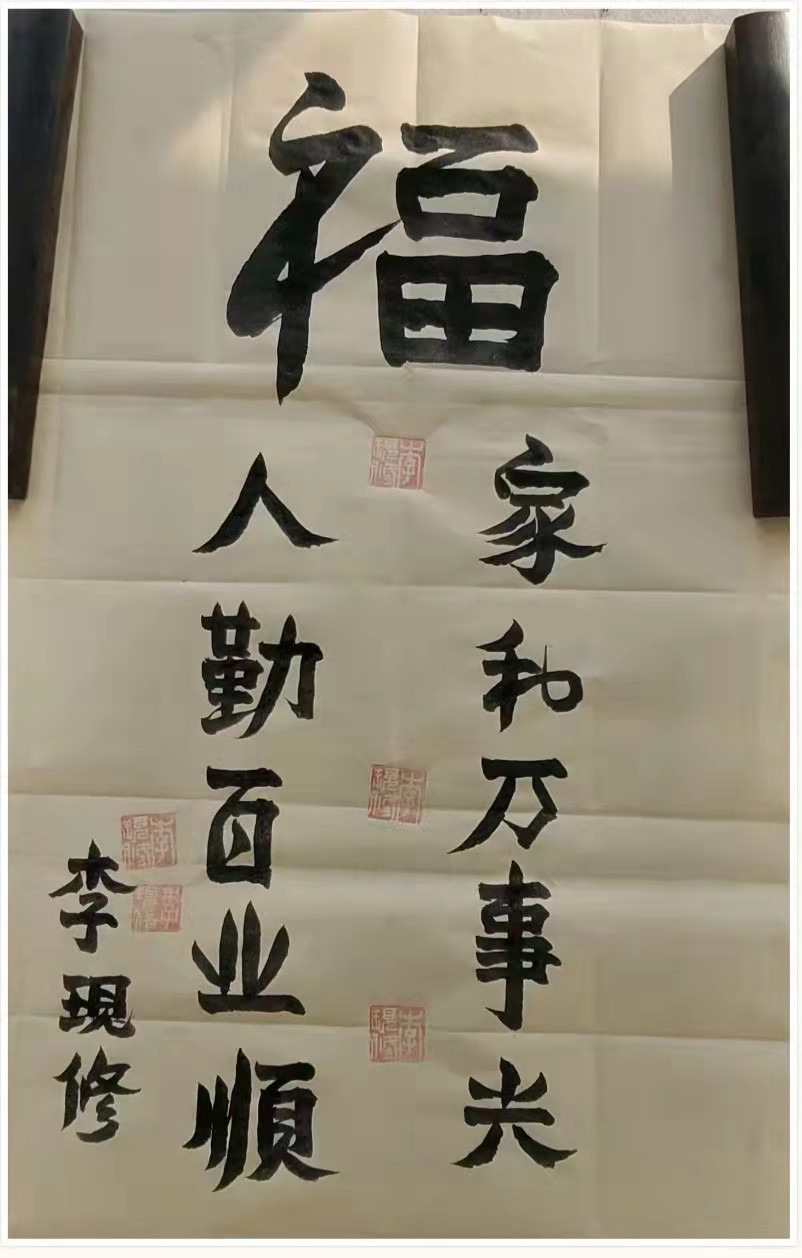 福
家和万事兴
人勤百业顺
李現修